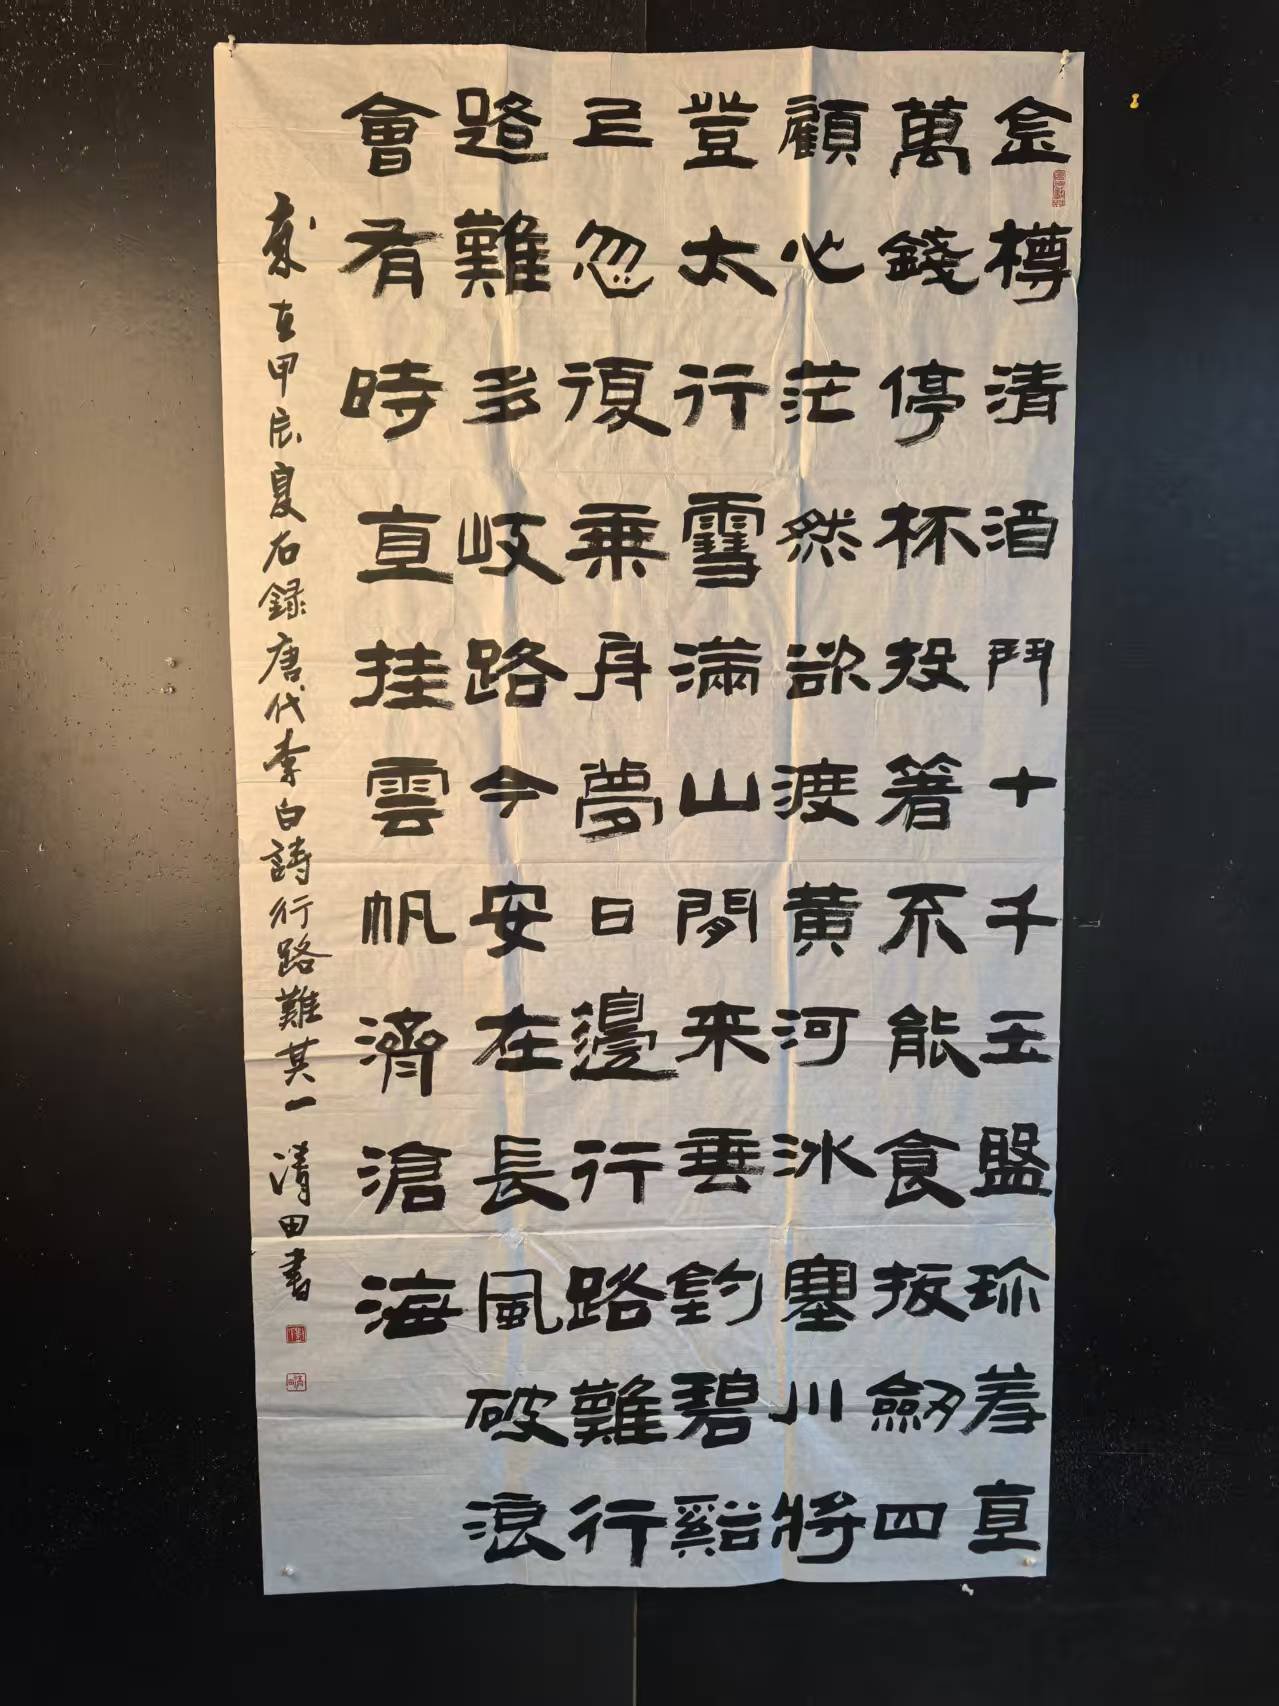 金樽清酒鬥十千玉盤珎羞直
萬錢停杯投箸不能食拔劒四
顧心茫然欲渡黄河冰塞川將
登太行雪滿山閒来垂釣碧谿
上忽復乘舟夢日邊行路難行
路難多岐路今安在長風破浪
會有時直挂雲帆濟滄海
歲在甲辰夏右錄唐代李白詩行路難其一 清田書